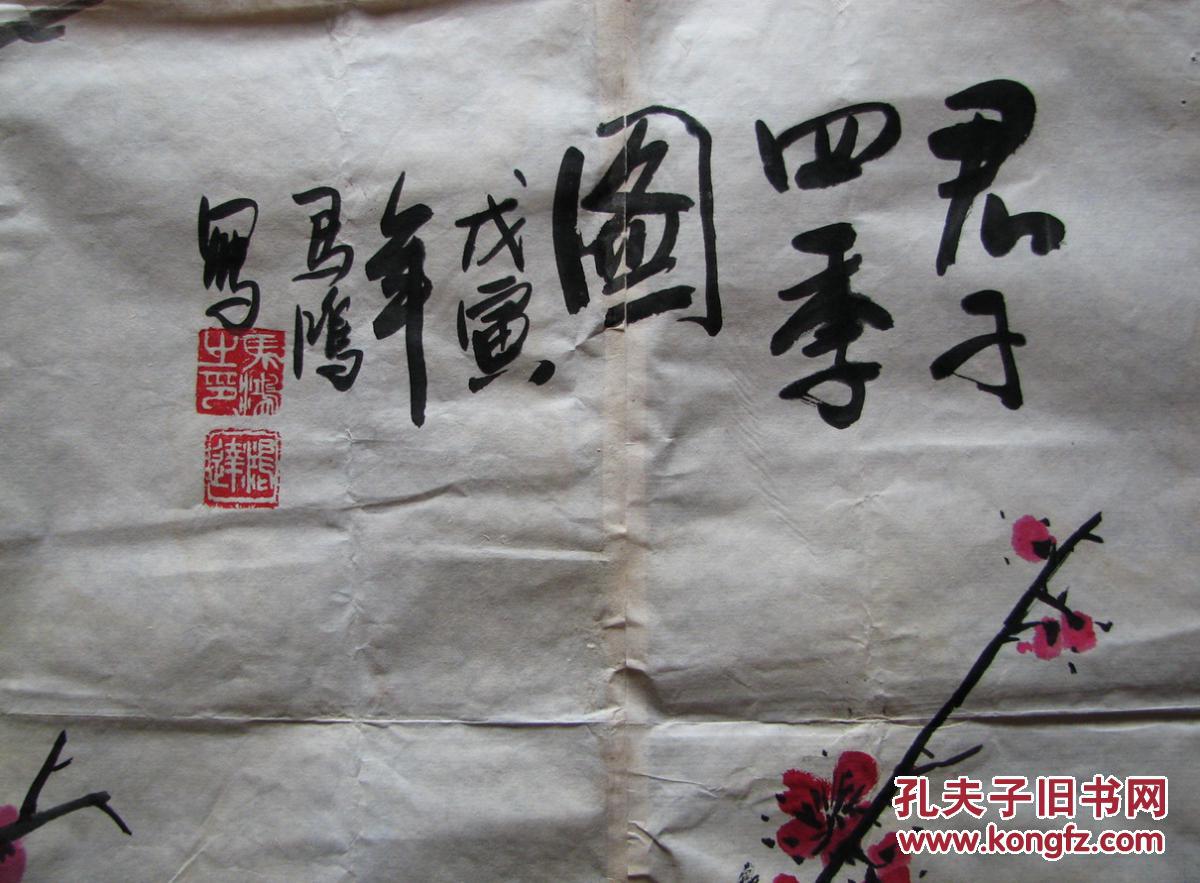 君子
四季
圖
戊寅
年
马鴻
寫
馬鴻
之印
孔夫子旧书网
www.kongfz.com